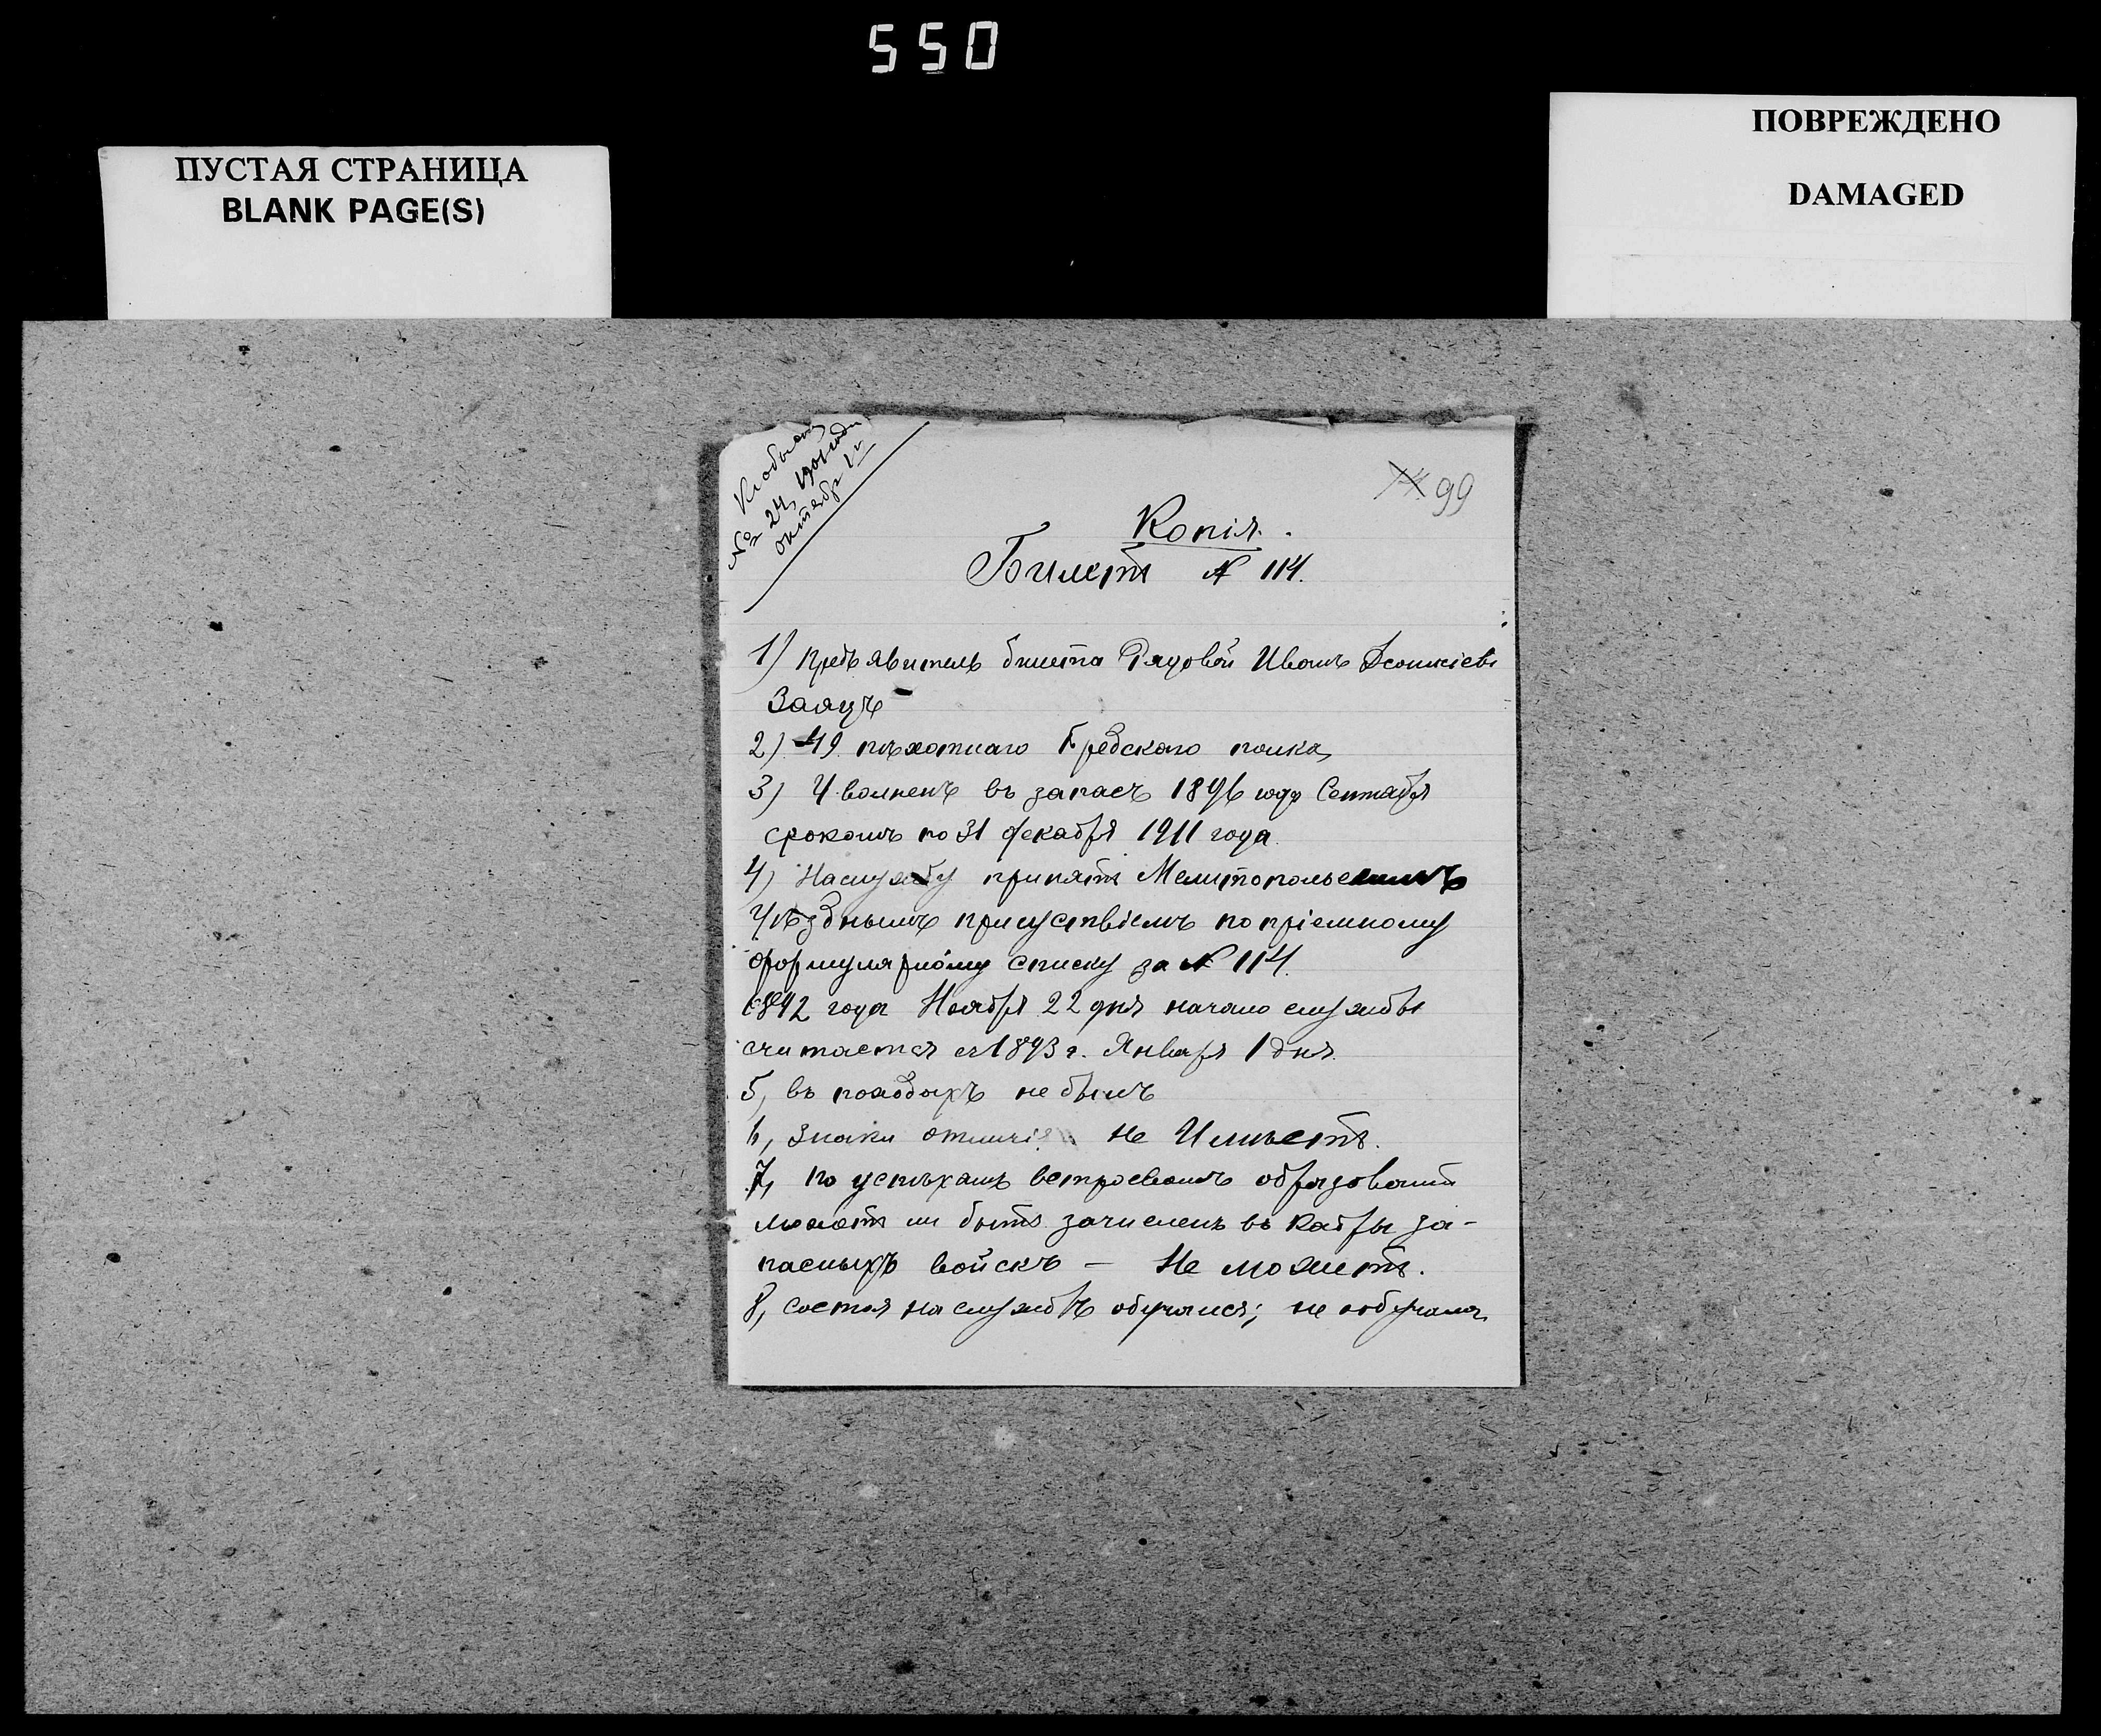 550
ПУСТАЯ СТРАНИЦА
BLANK PAGE(S)
ПОВРЕЖДЕНО
DAMAGED
№ 24, 1901 года
октябр 1 г
99
Копія.
Билетъ № 114.
1) Предъявитель билета Рядовой Иванъ
Заяцъ
2) 49 пѣхотнаго Бредскаго полка,
3) Уволненъ въ запасъ 1896 года Сентября
срокомъ по 31 декабря 1911 года.
4) На службу принятъ Мелитопольскимъ
Уѣзднымъ присуствіемъ по пріемному
формулярному списку за № 114.
1892 года Ноября 22 дня начало службы
считается съ 1893 г. Января 1 дня.
5, въ походахъ не былъ
6, Знаки отличія не Имѣетъ.
7, по успѣхамъ встроевомъ образованіи
можетъ ли быть зачисленъ въ кадры за-
пасныхъ войскъ — Не можетъ.
8, состоя на службѣ обучался; не обучался